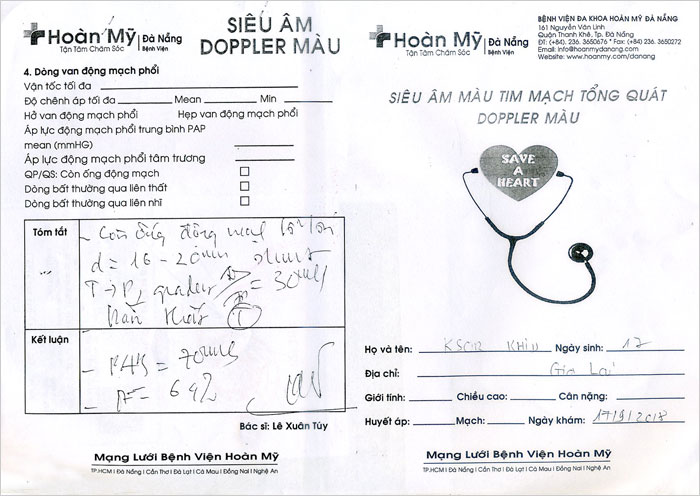 Hoàn Mỹ | Đà Nẵng
Tận Tâm Chăm Sóc Bệnh Viện
SIÊU ÂM
DOPPLER MÀU
4. Dòng van động mạch phổi
Vận tốc tối đa
Độ chênh áp tối đa Mean Min
Hở van động mạch phổi Hẹp van động mạch phổi
Áp lực động mạch phổi trung bình PAP
mean (mmHG)
Áp lực động mạch phổi tâm trương
QP/QS: Còn ống động mạch
Dòng bất thường qua liên thất
Dòng bất thường qua liên nhĩ
Tóm tắt
- Còn ống động mạch
d = 16 - 20mm shunt
T → P, = 30
Kết luận
- = 70
- = 64%
Bác sĩ: Lê Xuân Túy
Mạng Lưới Bệnh Viện Hoàn Mỹ
TP.HCM I Đà Nẵng I Cần Thơ I Đà Lạt I Cà Mau I Đồng Nai I Nghệ An
Hoàn Mỹ | Đà Nẵng
Tận Tâm Chăm Sóc Bệnh Viện
BỆNH VIỆN ĐA KHOA HOÀN MỸ ĐÀ NẴNG
161 Nguyễn Văn Linh
Quận Thanh Khê, Tp. Đà Nẵng
ĐT: (+84). 236. 3650676 * Fax: (+84). 236. 3650272
Email: info@hoanmydanang.com
Website: www.hoanmy.com/danang
SIÊU ÂM MÀU TIM MẠCH TỔNG QUÁT
DOPPLER MÀU
SAVE
A
HEART
Họ và tên: KSOR Ngày sinh: 17
Địa chỉ: Gia Lai
Giới tính: Chiều cao: Cân nặng:
Huyết áp: Mạch: Ngày khám: 17/9/2018
Mạng Lưới Bệnh Viện Hoàn Mỹ
TP.HCM I Đà Nẵng I Cần Thơ I Đà Lạt I Cà Mau I Đồng Nai I Nghệ An